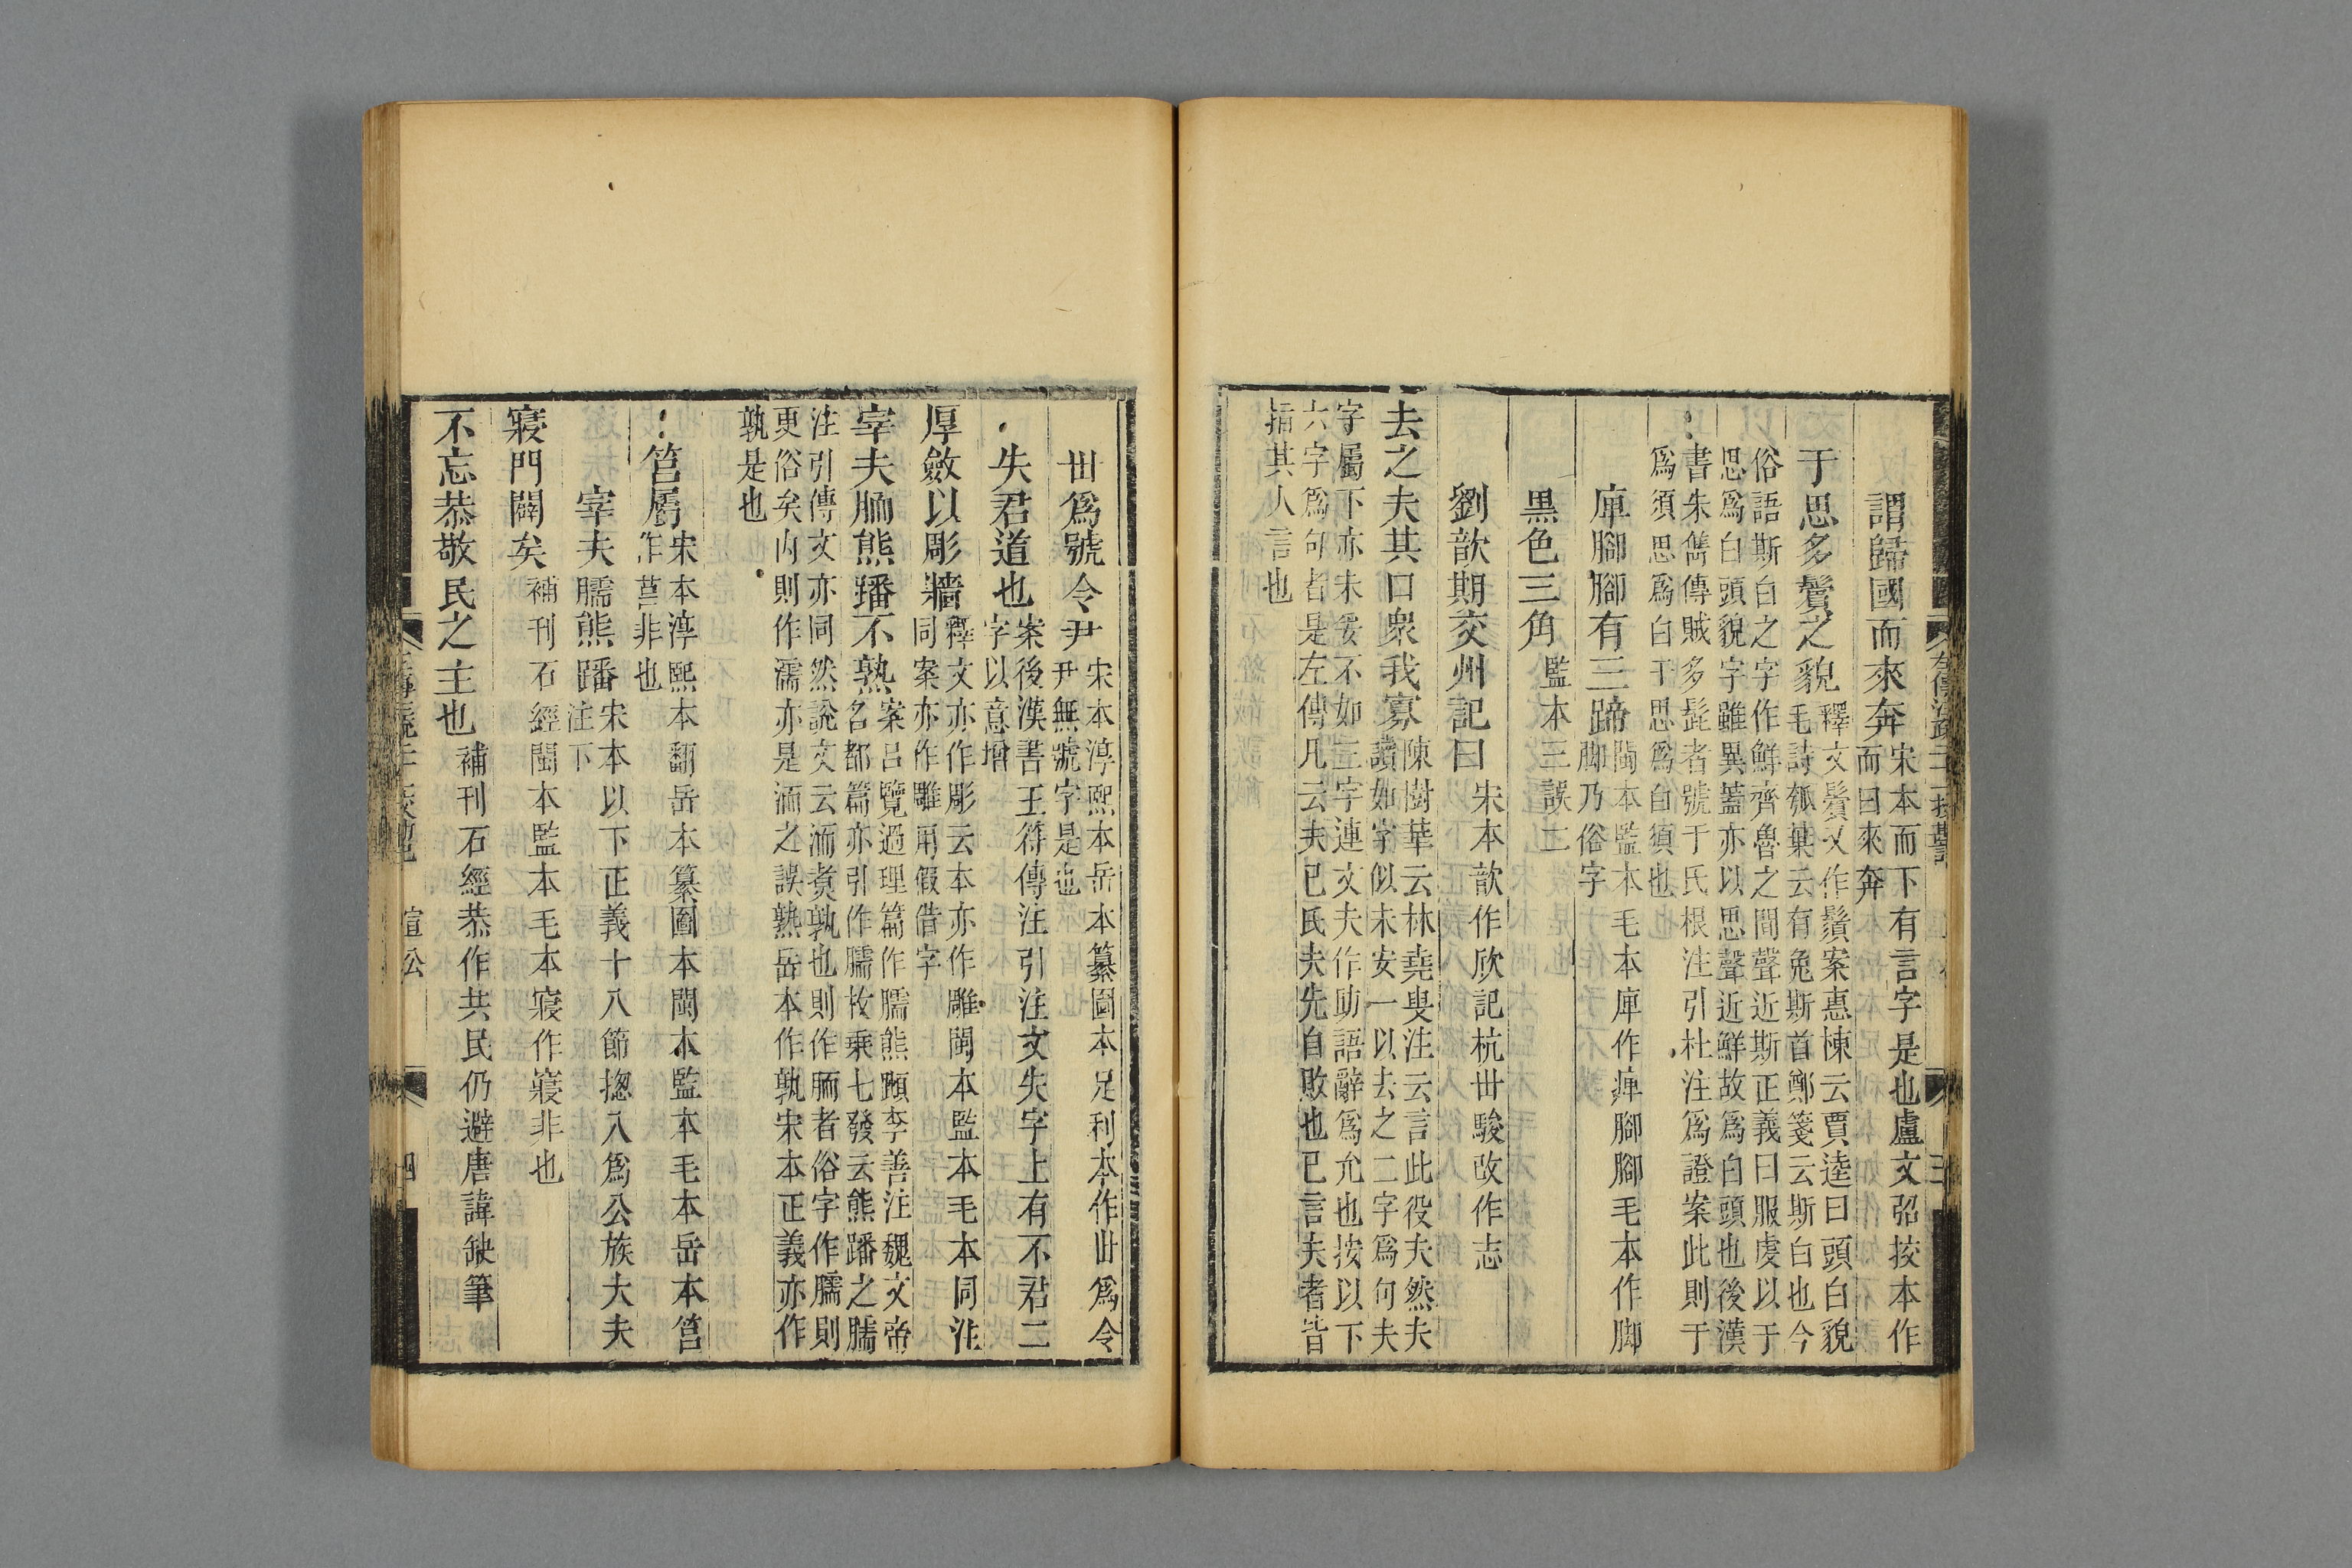 謂歸國而來奔
宋本而下有言字是也盧文弨挍本作
而曰來奔
于思多鬢之貌
釋文鬢又作鬚案惠棟云賈逵曰頭白貌
毛詩瓠葉云有兔斯首鄭箋云斯白也今
俗語斯白之字作鮮齊魯之間聲近斯正義曰服虔以于
思爲白頭貌字雖異蓋亦以思聲近鮮故爲白頭也後漢
書朱儁傳賊多髭者號于氐根注引杜注爲證案此則于
爲須思爲白于思爲白須也
庳腳腳有三蹄
閩本監本毛本庳作痺腳腳毛本作脚
脚乃俗字
黑色三角
監本三誤二
劉歆期交州記曰
宋本歆作欣記杭世駿改作志
去之夫其口衆我寡
陳樹華云林堯叟注云言此役夫然夫
讀如字似未安一以去之二字爲句夫
字屬下亦未妥不如三字連文夫作助語辭爲允也按以下
六字爲句者是左傳凡云夫已氏夫先自敗也已言夫者皆
指其人言也
丗爲號令尹
宋本淳熙本岳本纂圖本足利本作丗爲令
尹無號字是也
失君道也
案後漢書王符傳注引注文失字上有不君二
字以意增
厚斂以彫牆
釋文亦作彫云本亦作雕閩本監本毛本同注
同案亦作雕用假借字
宰夫胹熊蹯不熟
案呂覽過理篇作臑熊蹯李善注魏文帝
名都篇亦引作臑枚乗七發云熊蹯之臑
注引傳文亦同然說文云洏煑孰也則作胹者俗字作臑則
更俗矣內則作濡亦是洏之誤熟岳本作孰宋本正義亦作
孰是也
筥屬
宋本淳熙本翻岳本纂圖本閩本監本毛本岳本筥
作莒非也
宰夫臑熊蹯
宋本以下正義十八節揔入爲公族大夫
注下
寢門闢矣
補刊石經閩本監本毛本寢作寢非也
不忘恭敬民之主也
補刊石經恭作共民仍避唐諱缺筆
宣公
四